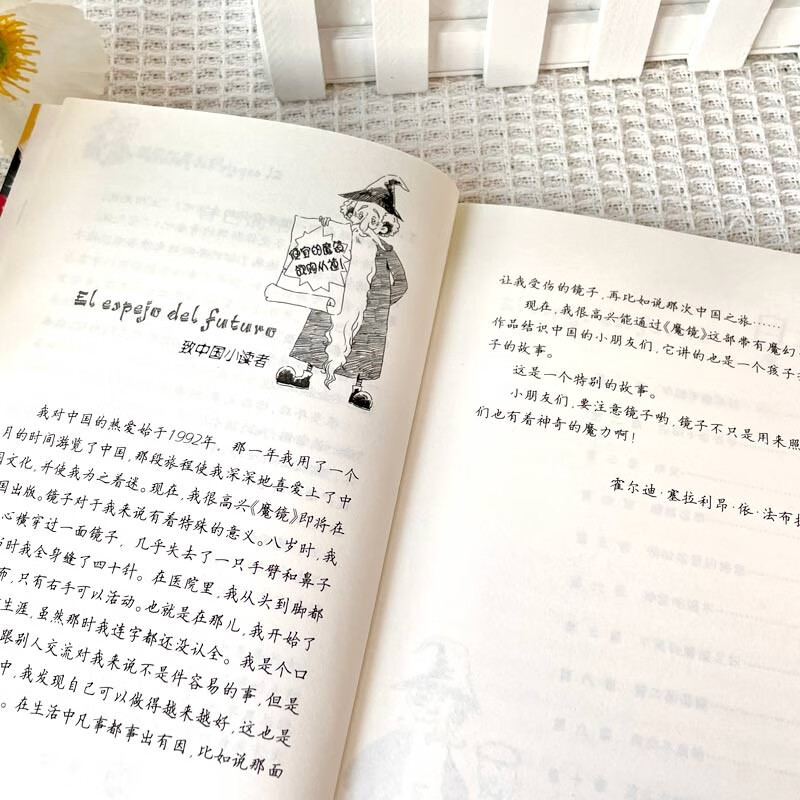 便宜的魔镜
欲购从速!
El espejo del futuro
致中国小读者
我对中国的热爱始于1992年,那一年我用了一个
月的时间游览了中国,那段旅程使我深深地喜爱上了中
文化,并使我为之着迷。现在,我很高兴《魔镜》即将在
国出版。镜子对于我来说有着特殊的意义。八岁时,我
心横穿过一面镜子,几乎失去了一只手臂和鼻子
当时我全身缝了四十针。在医院里,我从头到脚都
布,只有右手可以活动。也就是在那儿,我开始了
生涯,虽然那时我连字都还没认全。我是个口
跟别人交流对我来说不是件容易的事,但是
中,我发现自己可以做得越来越好,这也是
。在生活中凡事都事出有因,比如说那面
让我受伤的镜子,再比如说那次中国之旅……
现在,我很高兴能通过《魔镜》这部带有魔幻
作品结识中国的小朋友们,它讲的也是一个孩子
子的故事。
这是一个特别的故事。
小朋友们,要注意镜子哟,镜子不只是用来照
们也有着神奇的魔力啊!
霍尔迪·塞拉利昂·依·法布